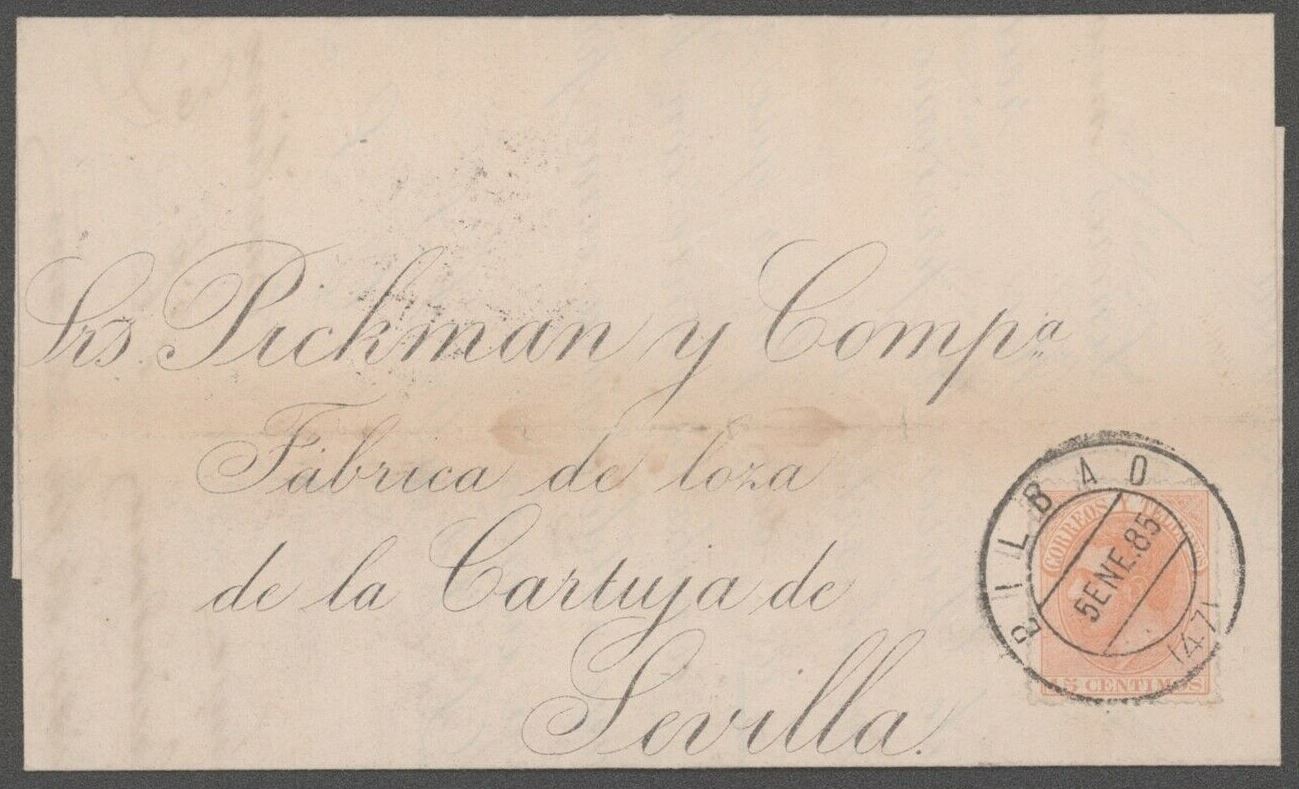 Srs Pickman y Compª
Fábrica de loza
de la Cartuja de
Sevilla.
BILBAO
5 ENE. 85
CORREOS Y
15 CENTIMOS